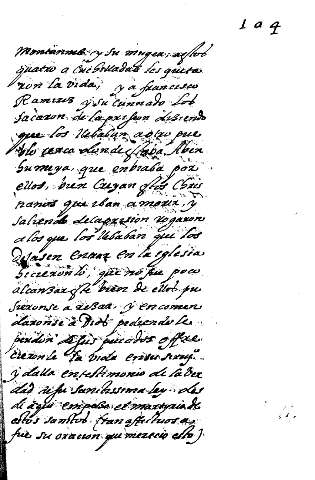 1 a 4
y su muger, a estos
quatro a cuchilladas les quita
ron la vida; y a francisco
Ramirez y su cuñado los
sacaron de la prision diciendo
que los llebaban a otro pue
blo cerca donde estava Aben
humeya que enbiaba por
ellos, bien Cuyan estos Chris
tianos que iban a morir, y
saliendo de la prision rogaron
a los que los llebaban que los
Dejasen entrar en la iglesia
hicieronlo, que no fue poco
alcanzar este bien de ellos pu
sieronse a reçar, y encomen
daronse a Dios pidiendole
perdon de sus pecados ofre
cieronle la vida en su serviº
y dalla en testimonio de la ver
dad de su santissima ley. des
de aqui empeso el martirio de
estos santos
fue su oracion que merecio esto